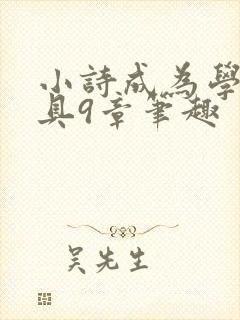 小詩成為學
具9章筆趣
吳先生